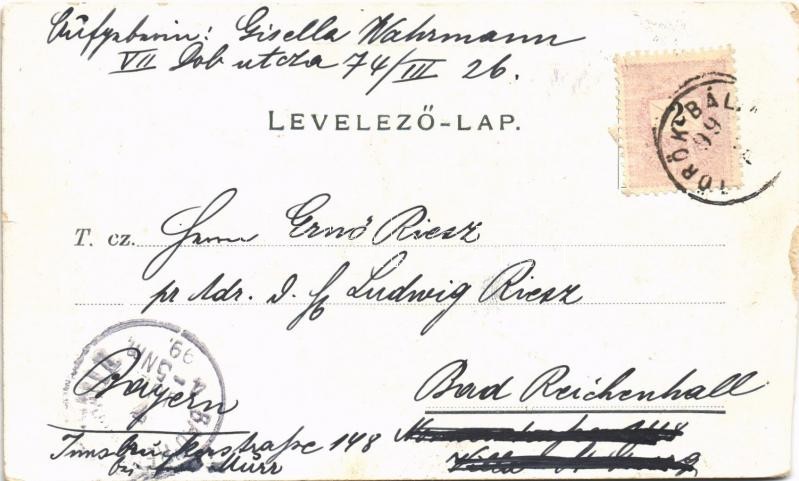 Gisella Wahrmann
VII Dob utcza 74/III 26.
LEVELEZŐ-LAP.
TÖRÖK-BÁL
99
T. cz. Herrn Ernő Riesz
pr Adr. d. H Ludwig Riesz
Bayern
Bad Reichenhall
Innsbruckerstraße 148
bei Mürr
99